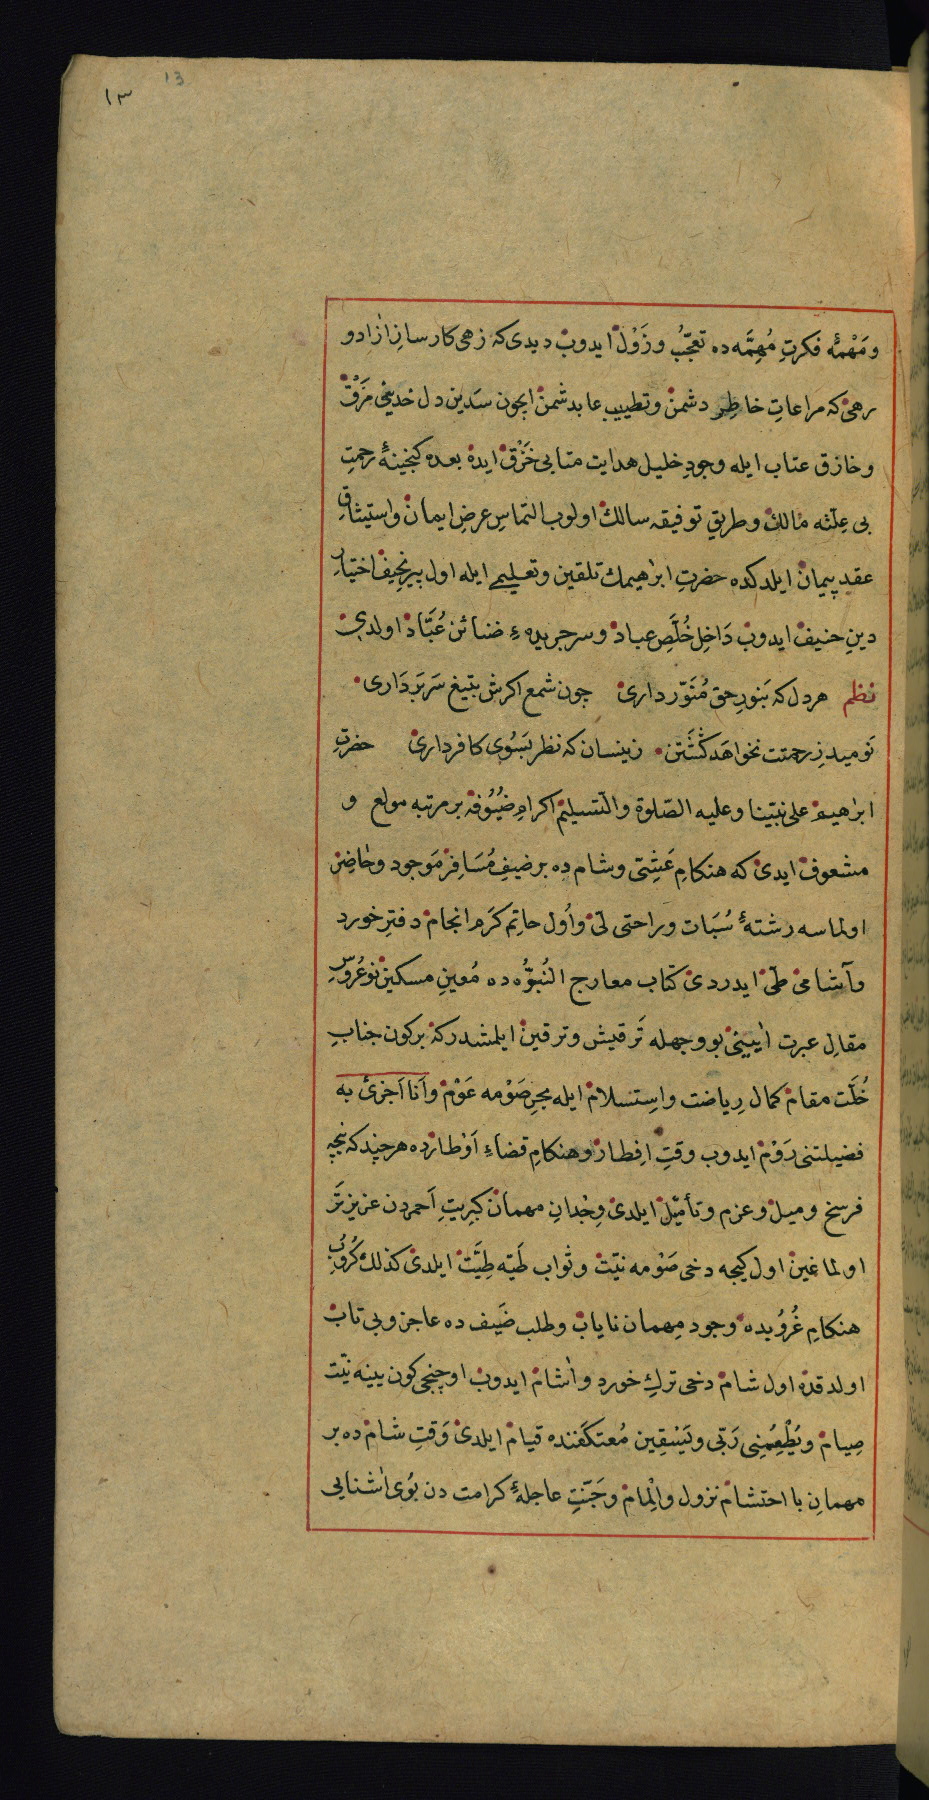 13
١٣
ومَهْمهٔ فكرتِ مُهِمَّه ده تعجّبُ وزَوْل ايدوب ديدى كه زهى كارسازِ ازادو
رهى كه مراعاتِ خاطِر دشمن وتطييب عابد شمن ايچون سَدين دل خدينى مَزْق
وخازق عتاب ايله وجودِ خليل هدايت متابى خَرْق ايده بعده كنجينهٔ رحمتِ
بى عِلّته مالك وطريقِ توفيقه سالك اولوب التماسِ عرضِ ايمان واستيثاقِ
عقدِ پيمان ايلدكده حضرتِ ابرٰهيمك تلقين وتعليمى ايله اول پيرِ نحيف اختيارِ
دينِ حنيف ايدوب دَاخِل خُلَّصِ عباد وسرجريدهءِ ضنائن عُبَّاد اولدى
نظم هر دل كه بَنورِ حق مُنَوّر دارى چون شمع اكرش بتيغ سَربَردَارى
نَوميد زِرحمتت نخواهَد كَشْتَن زينسان كه نظر بَسُوىِ كافر دارى حضرتِ
ابرٰهيم على نبيّنا وعليه الصّلوة والتسليم اكرامِ ضُيُوفه بر مرتبه مولع و
مشعوف ايدى كه هنكامِ عَشِىّ وشام ده بر ضيفِ مُسَافِر مَوجود وحٰاضِر
اولماسه رشتهٔ سُبَات وراحتى لىّ واُول حاتِم كَرَم انجام دفترِ خورد
وآشامى طىّ ايدردى كتاب معارج النُبوُّه ده مُعينِ مسكين نو عُروسِ
مقالِ عبرت اٰيينى بو وجهله تَرقيش وترقين ايلمشدر كه بركون جنابِ
خُلَّت مقام كمال رِياضت واسِتسلام ايله مجرِ صَوْمه عَوْم وَاَنَا اَجزِىْ بِه
فضيلتنى رَوْم ايدوب وقتِ اِفطار وهنكامِ قضاءِ اَوْطارده هر چند كه نيجه
فرسخ وميل وعزم وتأميل ايلدى وِجْدانِ مهمان كبريتِ اَحمردن عزيزتَر
اولماغين اول كيجه دخى صَوْمه نيّت وثواب طَيّه طِيَّت ايلدى كذلك غُروُبِ
هنكامِ غُروُبده وجود مِهمان ناياب وطلب ضَيف ده عاجز وبى تاب
اولدقده اول شام دخى تركِ خورد واٰشام ايدوب اوچنجى كون يينه نيّت
صِيام ويُطْعِمُنِى رَبّى ويَسْقِين مُعتكَفنده قيام ايلدى وَقتِ شام ده بر
مهمانِ با احتشام نزول واِلْمام وجَنّتِ عاجلهٔ كرامت دن بُوى اٰشنايى